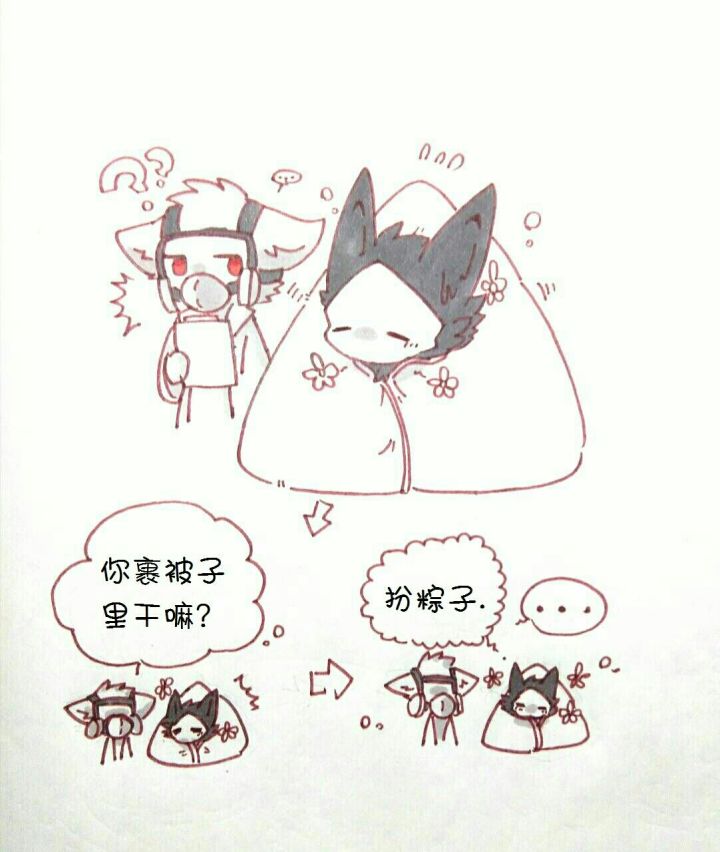 ???
...
你裹被子
里干嘛?
扮粽子.
...